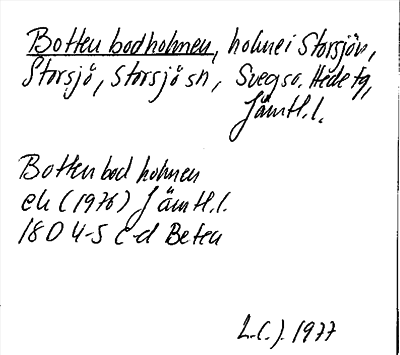 Bottenbodholmen, holme i Storsjön,
Storsjö, Storsjö sn, Svegs o. Hede tg,
Jämtl. l.
Bottenbodholmen
ek (1976) Jämtl. l.
18D 4-5 c-d Beten
L.C.J. 1977